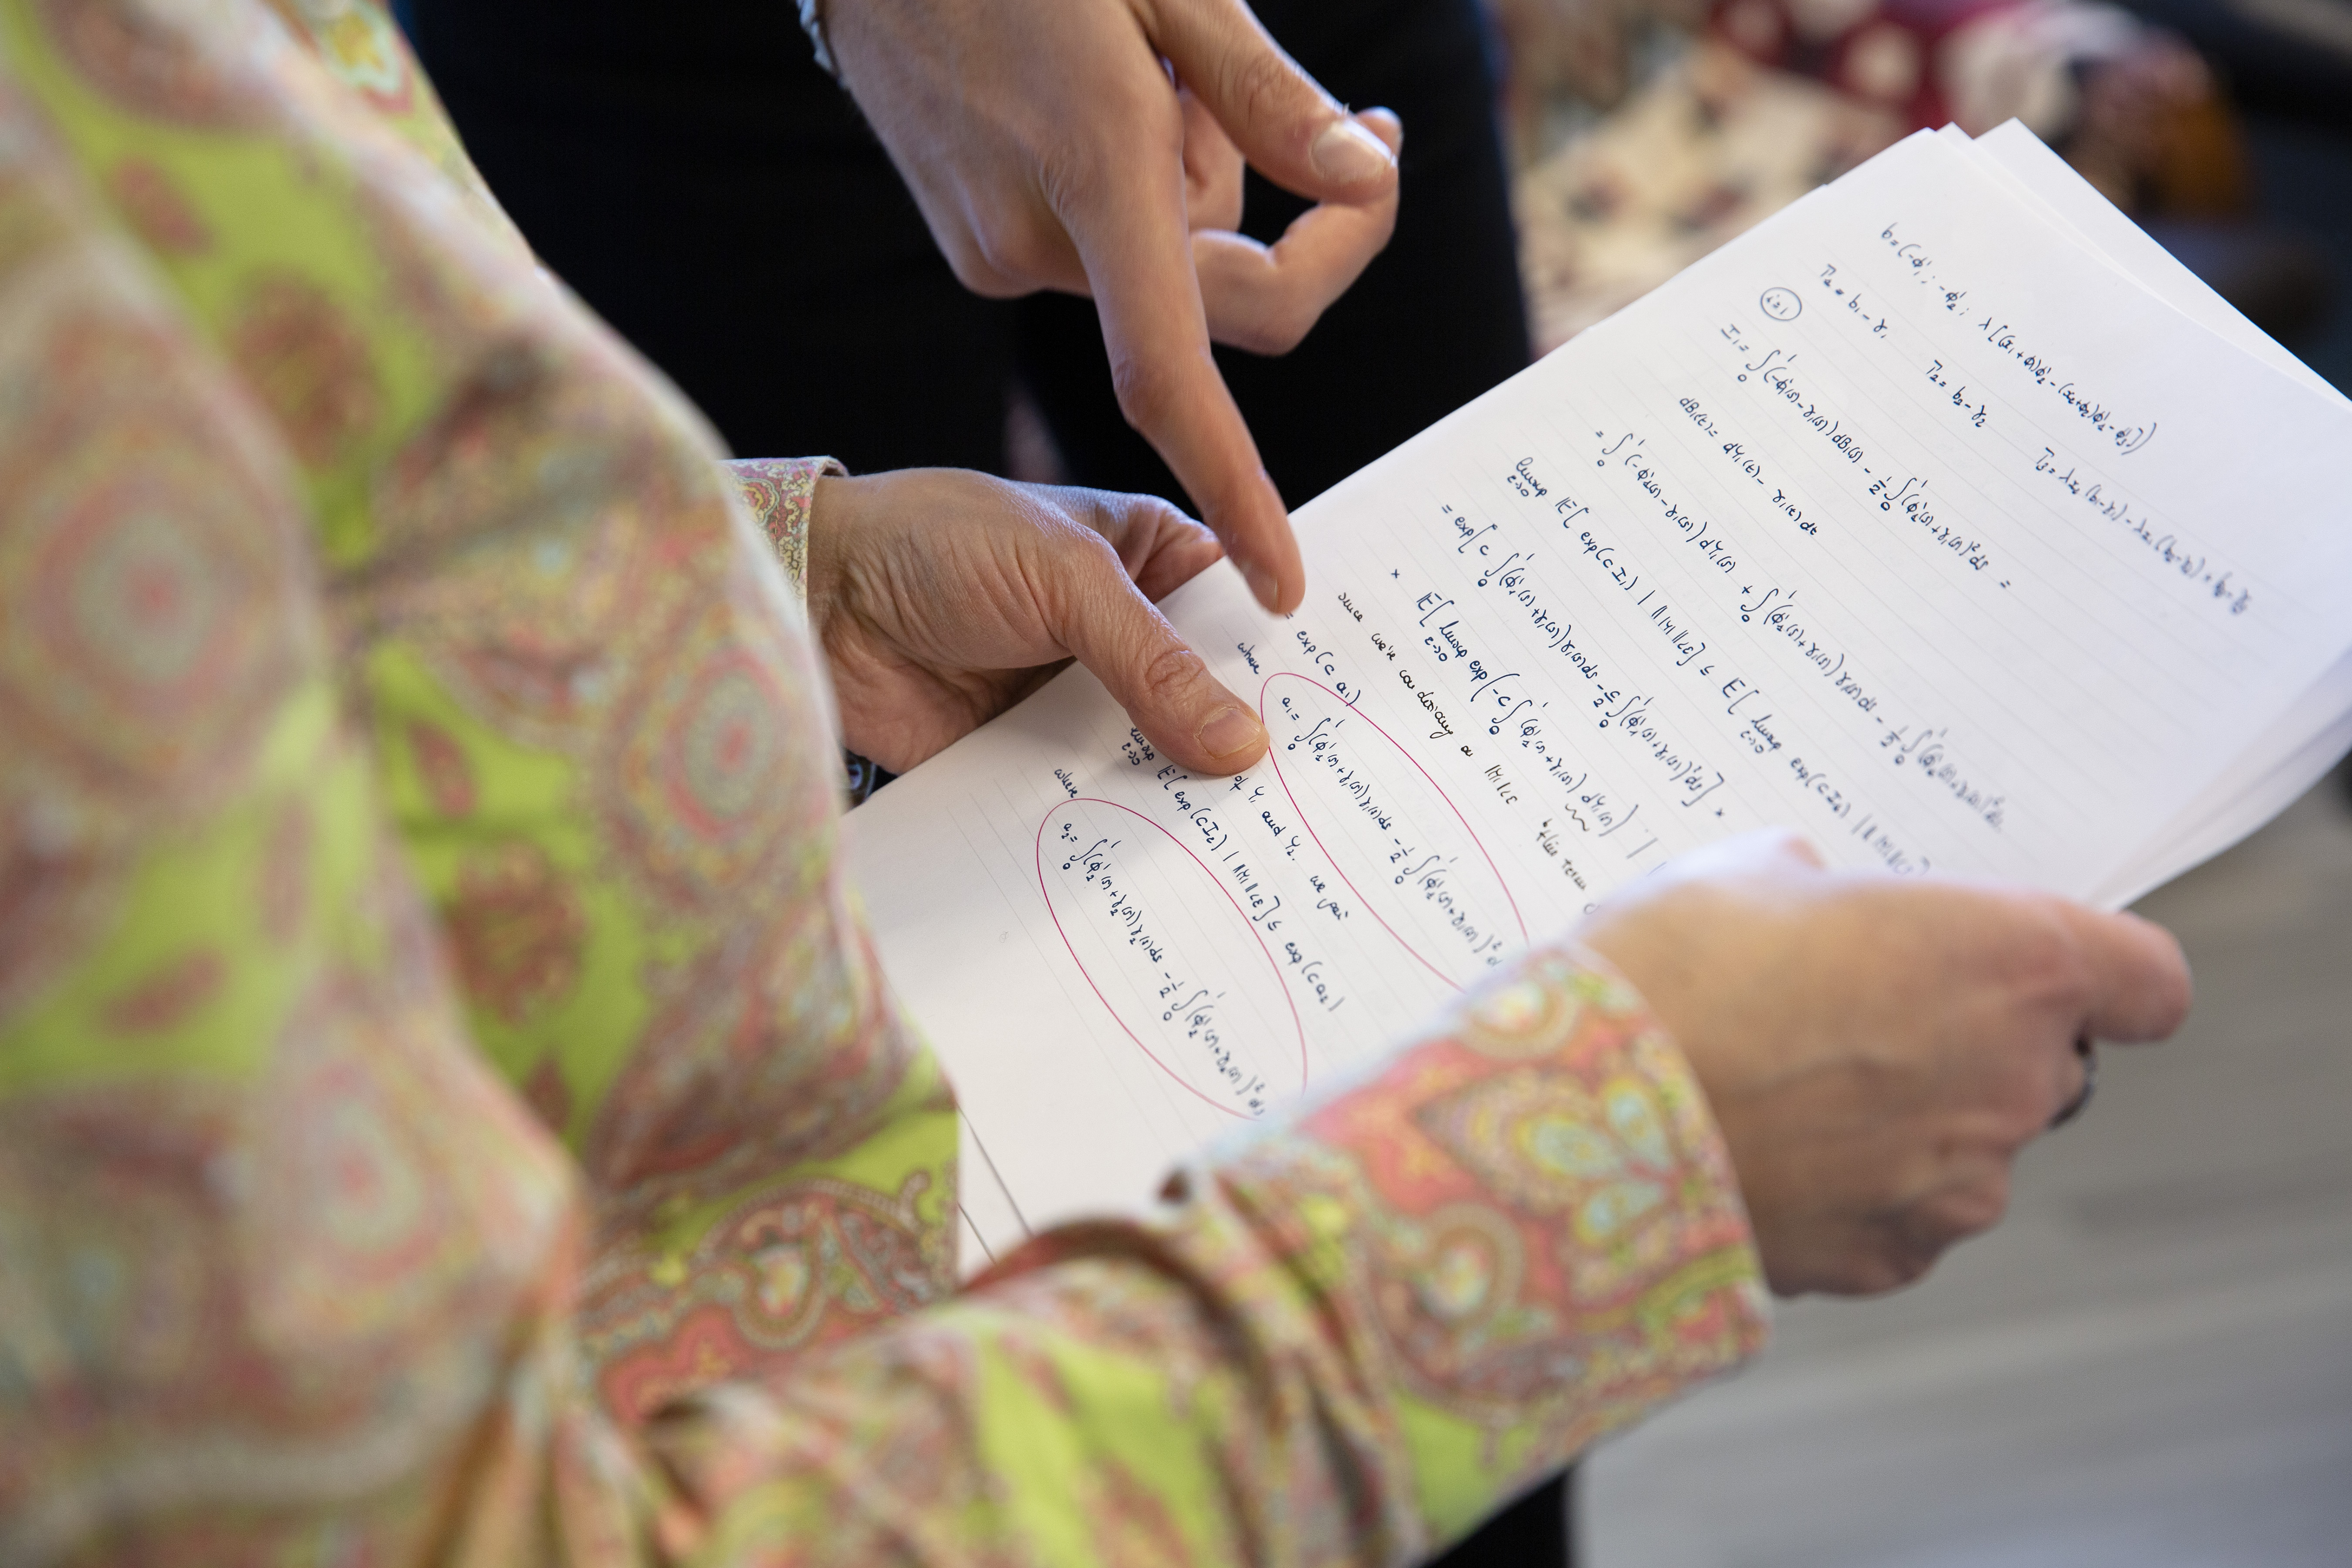 b=(-ϕ₁'; -ϕ₂'; λ[(x₁+ϕ₁)ϕ₂'-(x₂+ϕ₂)ϕ₁'-ϕ₃'])
T₁=b₁-γ₁ T₂=b₂-γ₂ T₃=λx₂(b₁-γ₁)-λx₁(b₂-γ₂)+b₃-γ₃
i=1
I₁=∫₀¹(-ϕ₁'(s)-γ₁(s))dB₁(s)-½∫₀¹(ϕ₁'(s)+γ₁(s))²ds =
dB₁(t)= dY₁(t)-γ₁(t)dt
=∫₀¹(-ϕ₁'(s)-γ₁(s))dY₁(s)+∫₀¹(ϕ₁'(s)+γ₁(s))γ₁(s)ds-½∫₀¹(ϕ₁'(s)+γ₁(s))²ds
limsup ε→0 𝔼[exp(cI₁) | ‖M‖<ε] ≤ 𝔼[limsup ε→0 exp(cI₁) | ‖M‖<ε]
= exp[c∫₀¹(ϕ₁'(s)+γ₁(s))γ₁(s)ds-c/2∫₀¹(ϕ₁'(s)+γ₁(s))²ds] ×
× 𝔼[limsup ε→0 exp(-c∫₀¹(ϕ₁'(s)+γ₁(s))dY₁(s)) |
since we're conditioning on ‖M‖<ε this term
= exp(c a₁)
where a₁=∫₀¹(ϕ₁'(s)+γ₁(s))γ₁(s)ds-½∫₀¹(ϕ₁'(s)+γ₁(s))²d
of Y₁ and Y₂, we get
limsup ε→0 𝔼[exp(cI₂) | ‖M‖<ε] ≤ exp(c a₂)
where a₂=∫₀¹(ϕ₂'(s)+γ₂(s))γ₂(s)ds-½∫₀¹(ϕ₂'(s)+γ₂(s))²ds